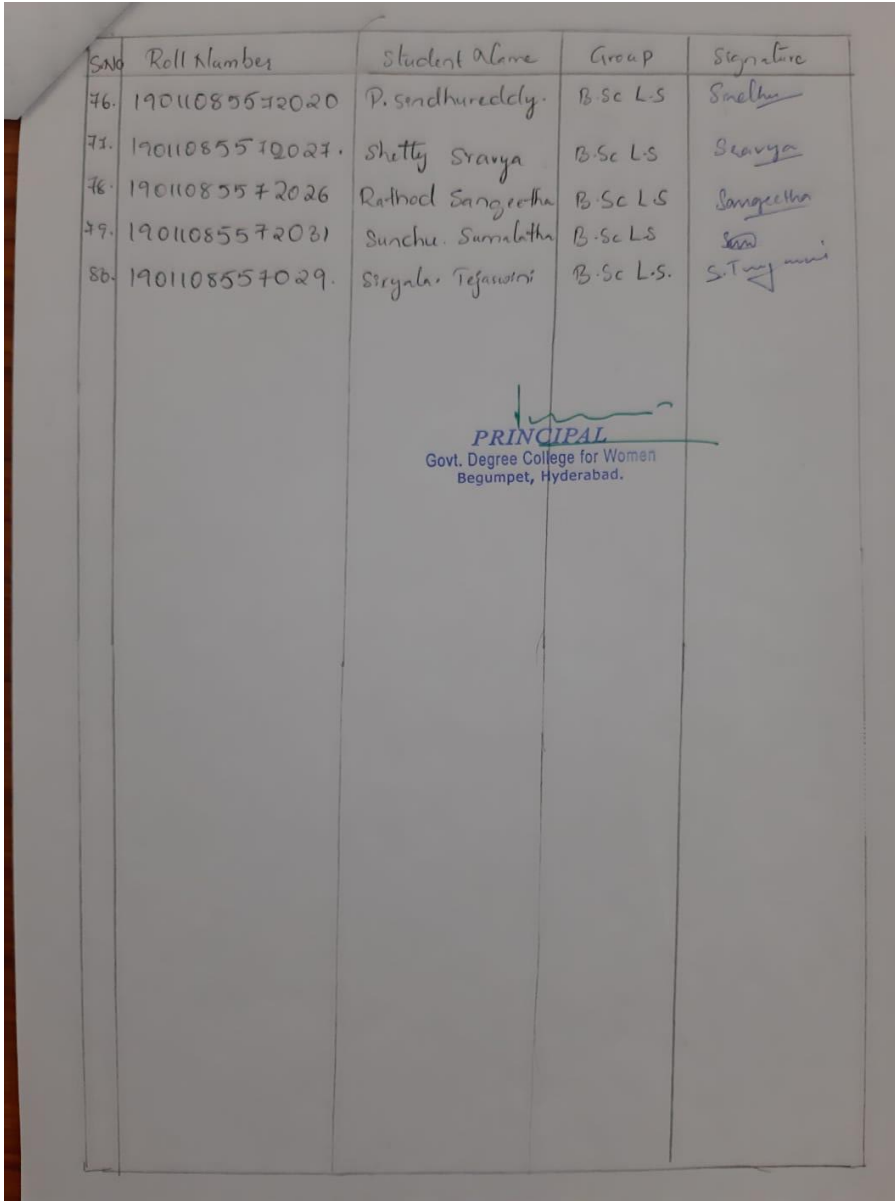 S.No Roll Number Student Name Group Signature
76. 19011085572020 P. Sindhureddy. B.Sc L.S Sindhu
77. 19011085572027. Shetty Sravya B.Sc L.S Sravya
78. 19011085572026 Rathod Sangeetha B.Sc L.S Sangeetha
79. 19011085572031 Sunchu. Sumalatha B.Sc L.S
80. 1901108557029. Siryala. Tejaswini B.Sc L.S.
PRINCIPAL
Govt. Degree College for Women
Begumpet, Hyderabad.